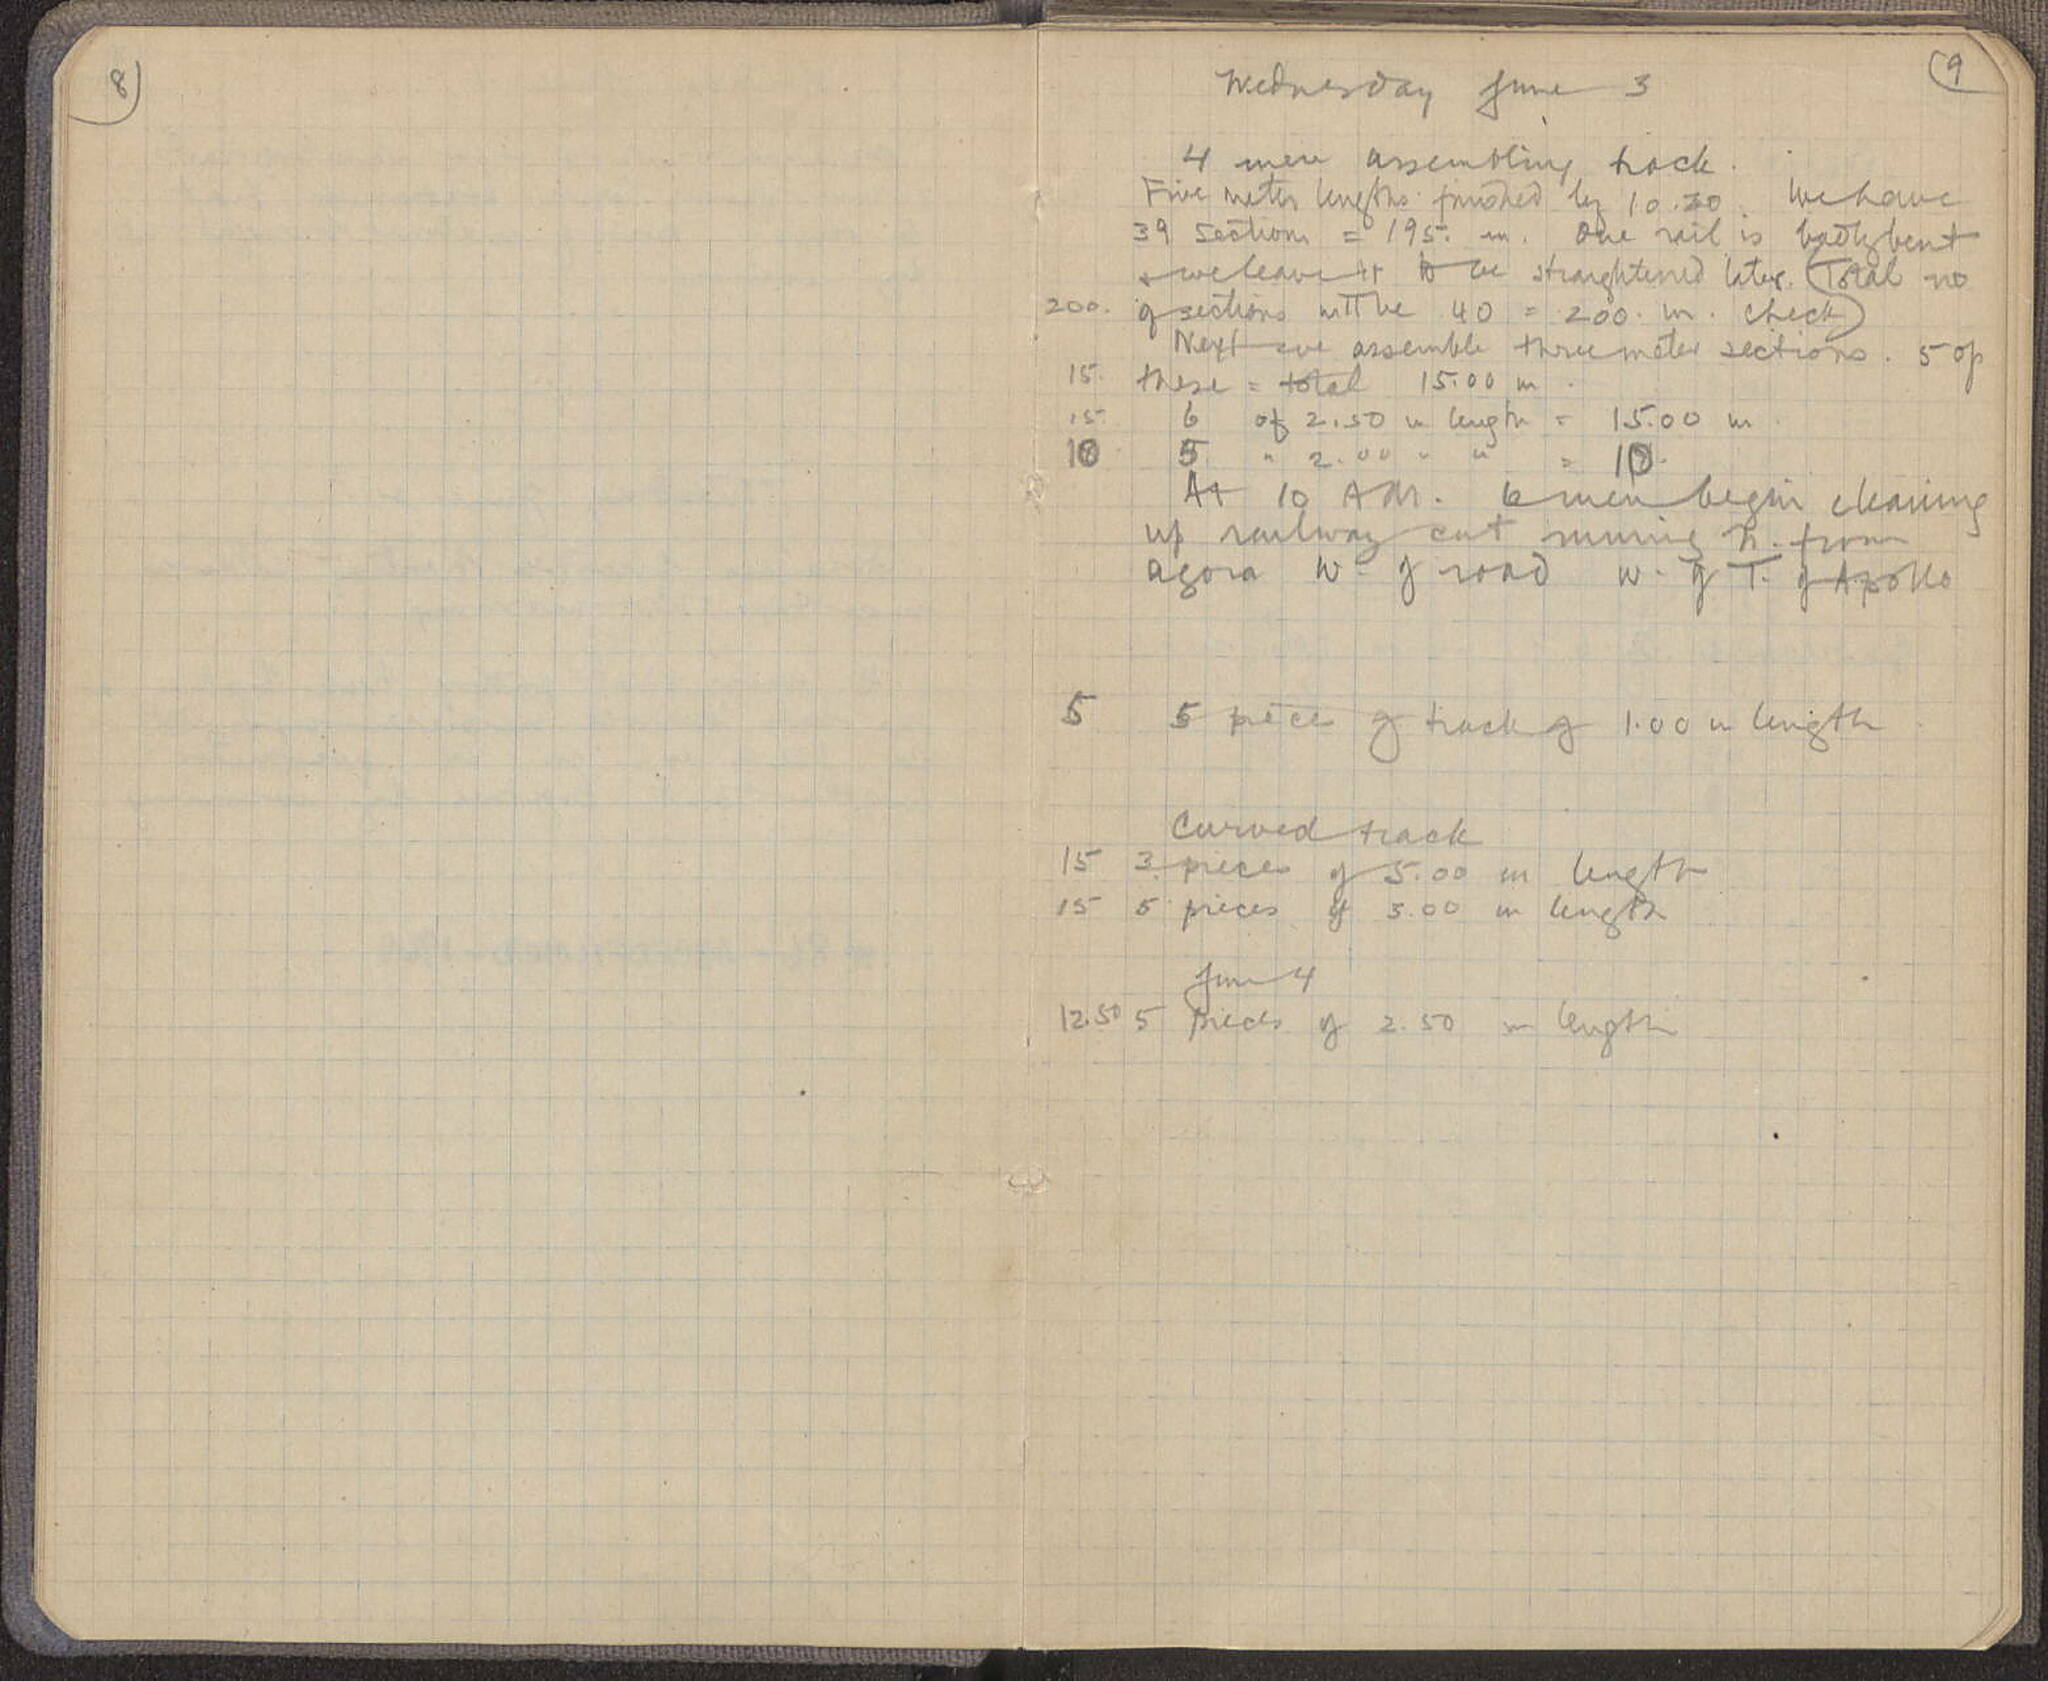 8
9
Wednesday June 3
4 men assembling track.
Five meter lengths finished by 10.30. We have
39 sections = 195. m. One rail is badly bent
& we leave it to be straightened later. (Total no
200. of sections will be 40 = 200. m. check)
Next we assemble three meter sections. 5 of
15. these = total 15.00 m.
15. 6 of 2.50 m length = 15.00 m.
10 5 " 2.00 " " = 10.
At 10 AM. 6 men begin cleaning
up railway cut running N. from
agora W. of road W. of T. of Apollo
5 5 pieces of track of 1.00 m length
Curved track
15 3 pieces of 5.00 m length
15 5 pieces of 3.00 m length
June 4
12.50 5 pieces of 2.50 m length